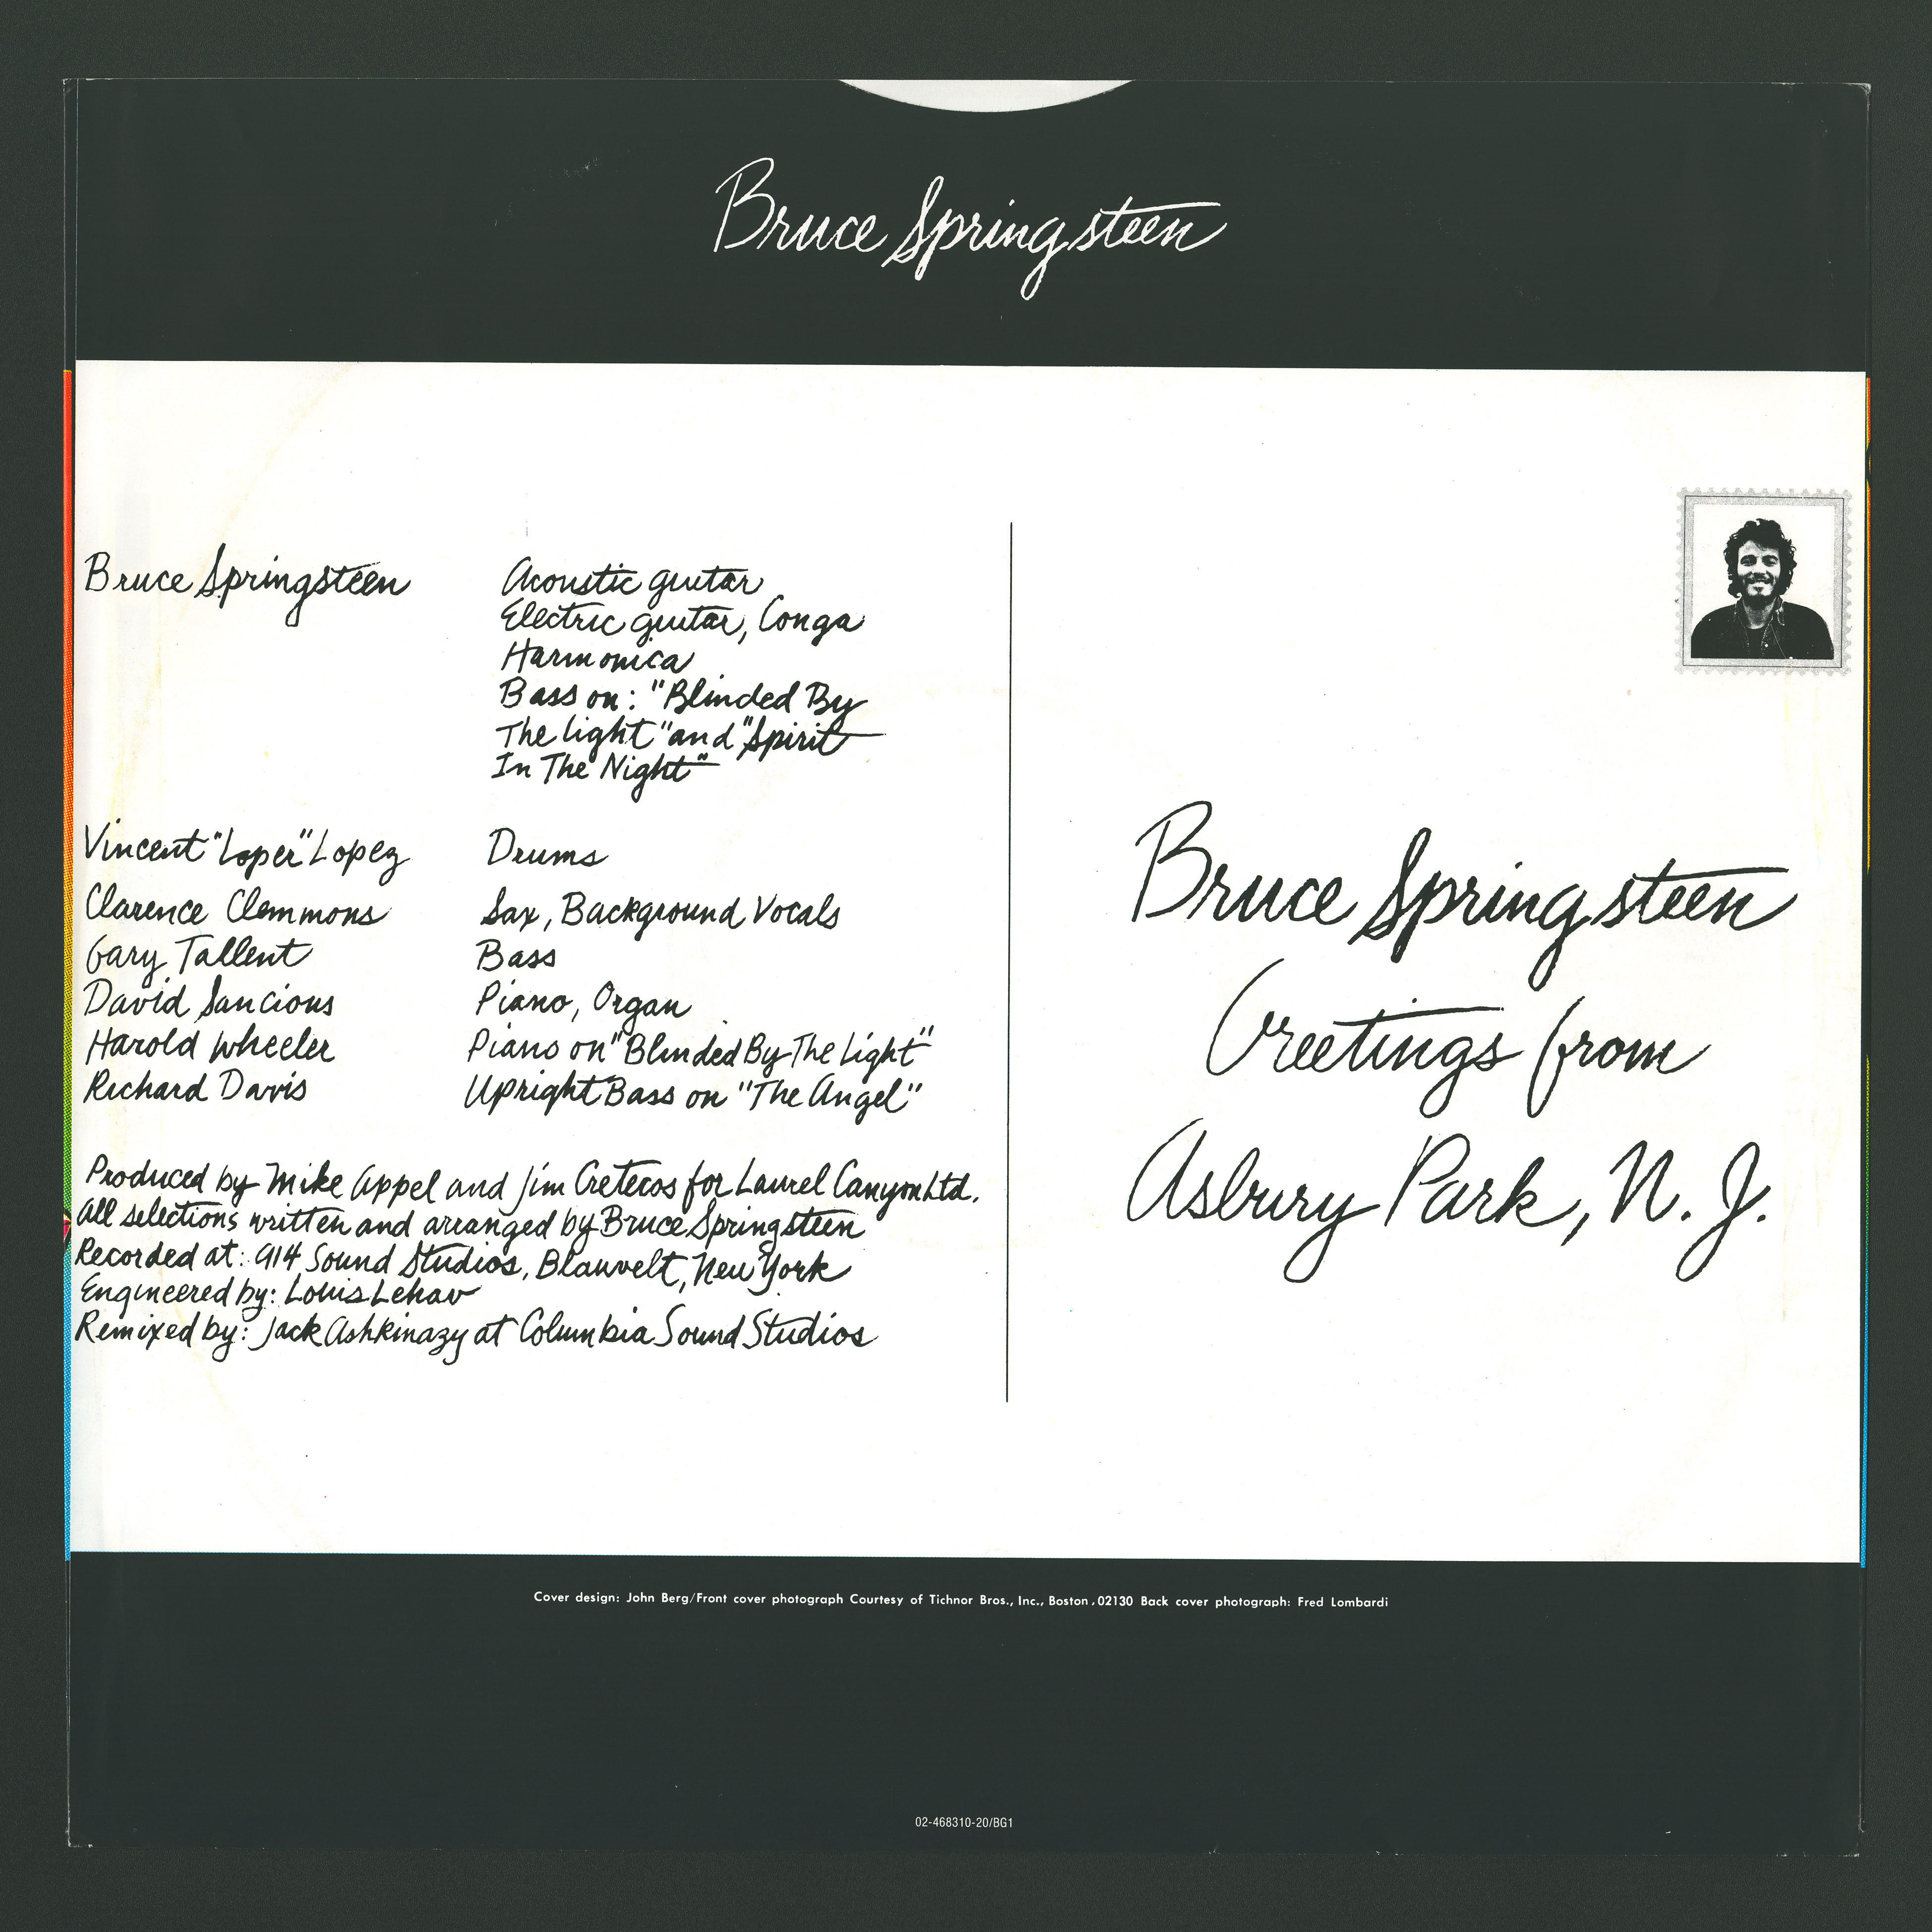 Bruce Springsteen
Bruce Springsteen Acoustic guitar
Electric guitar, Conga
Harmonica
Bass on: "Blinded By
The Light" and "Spirit
In The Night"
Vincent "Loper" Lopez Drums
Clarence Clemmons Sax, Background Vocals
Gary Tallent Bass
David Sancious Piano, Organ
Harold Wheeler Piano on "Blinded By The Light"
Richard Davis Upright Bass on "The Angel"
Produced by Mike Appel and Jim Cretecos for Laurel Canyon Ltd.
All selections written and arranged by Bruce Springsteen
Recorded at: 914 Sound Studios, Blauvelt, New York
Engineered by: Louis Lehav
Remixed by: Jack Ashkinazy at Columbia Sound Studios
Bruce Springsteen
Greetings from
Asbury Park, N. J.
Cover design: John Berg/Front cover photograph Courtesy of Tichnor Bros., Inc., Boston, 02130 Back cover photograph: Fred Lombardi
02-468310-20/BG1